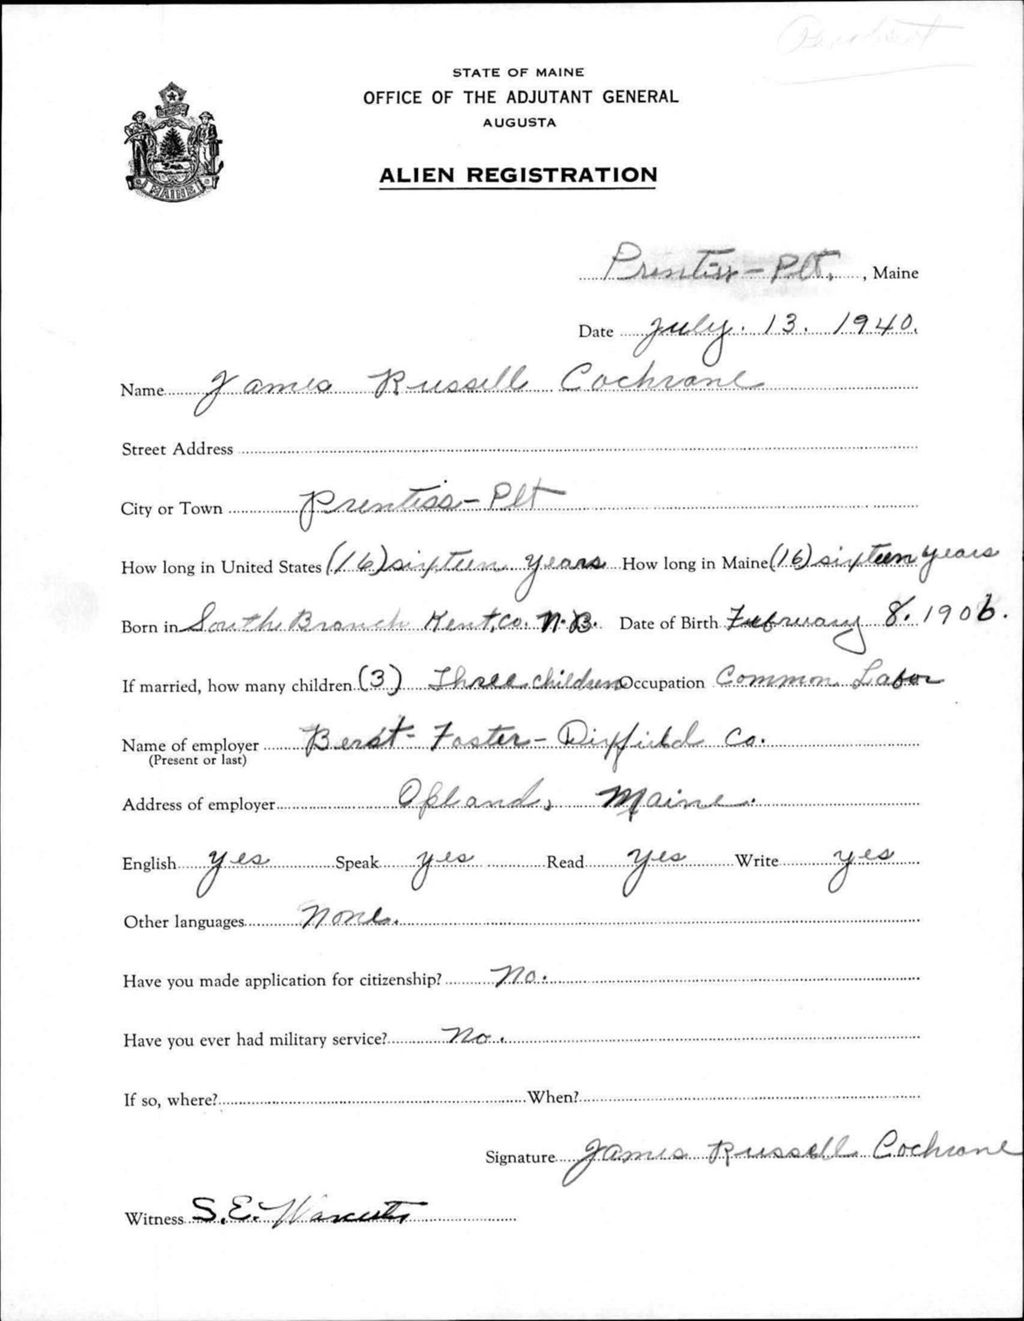 STATE OF MAINE
OFFICE OF THE ADJUTANT GENERAL
AUGUSTA
ALIEN REGISTRATION
MAINE
Prentiss - Plt. , Maine
Date July. 13. 1940.
Name James Russell Cochrane
Street Address
City or Town Prentiss - Plt
How long in United States (16) sixteen years How long in Maine (16) sixteen years
Born in South Branch Kent, Co. N.B. Date of Birth February 8. 1906.
If married, how many children (3) Three children Occupation Common Labor
Name of employer Berst - Foster - Dixfield Co.
(Present or last)
Address of employer Maine.
English yes Speak yes Read yes Write yes
Other languages None.
Have you made application for citizenship? No.
Have you ever had military service? No.
If so, where? When?
Signature James Russell Cochrane
Witness S. E.